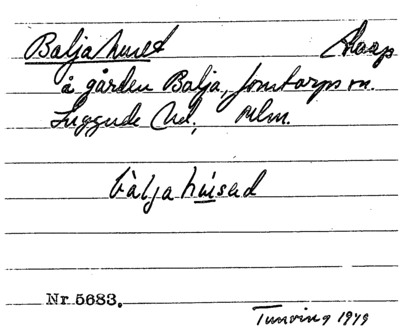 Baljahuset Skaap
å gården Balja, Jonstorps sn.
Luggude hd., Mlm.
bàlja húisad
Nr 5683.
Tunving 1979